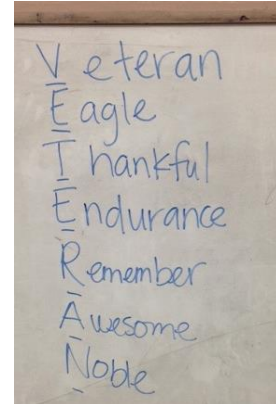 Veteran
Eagle
Thankful
Endurance
Remember
Awesome
Noble